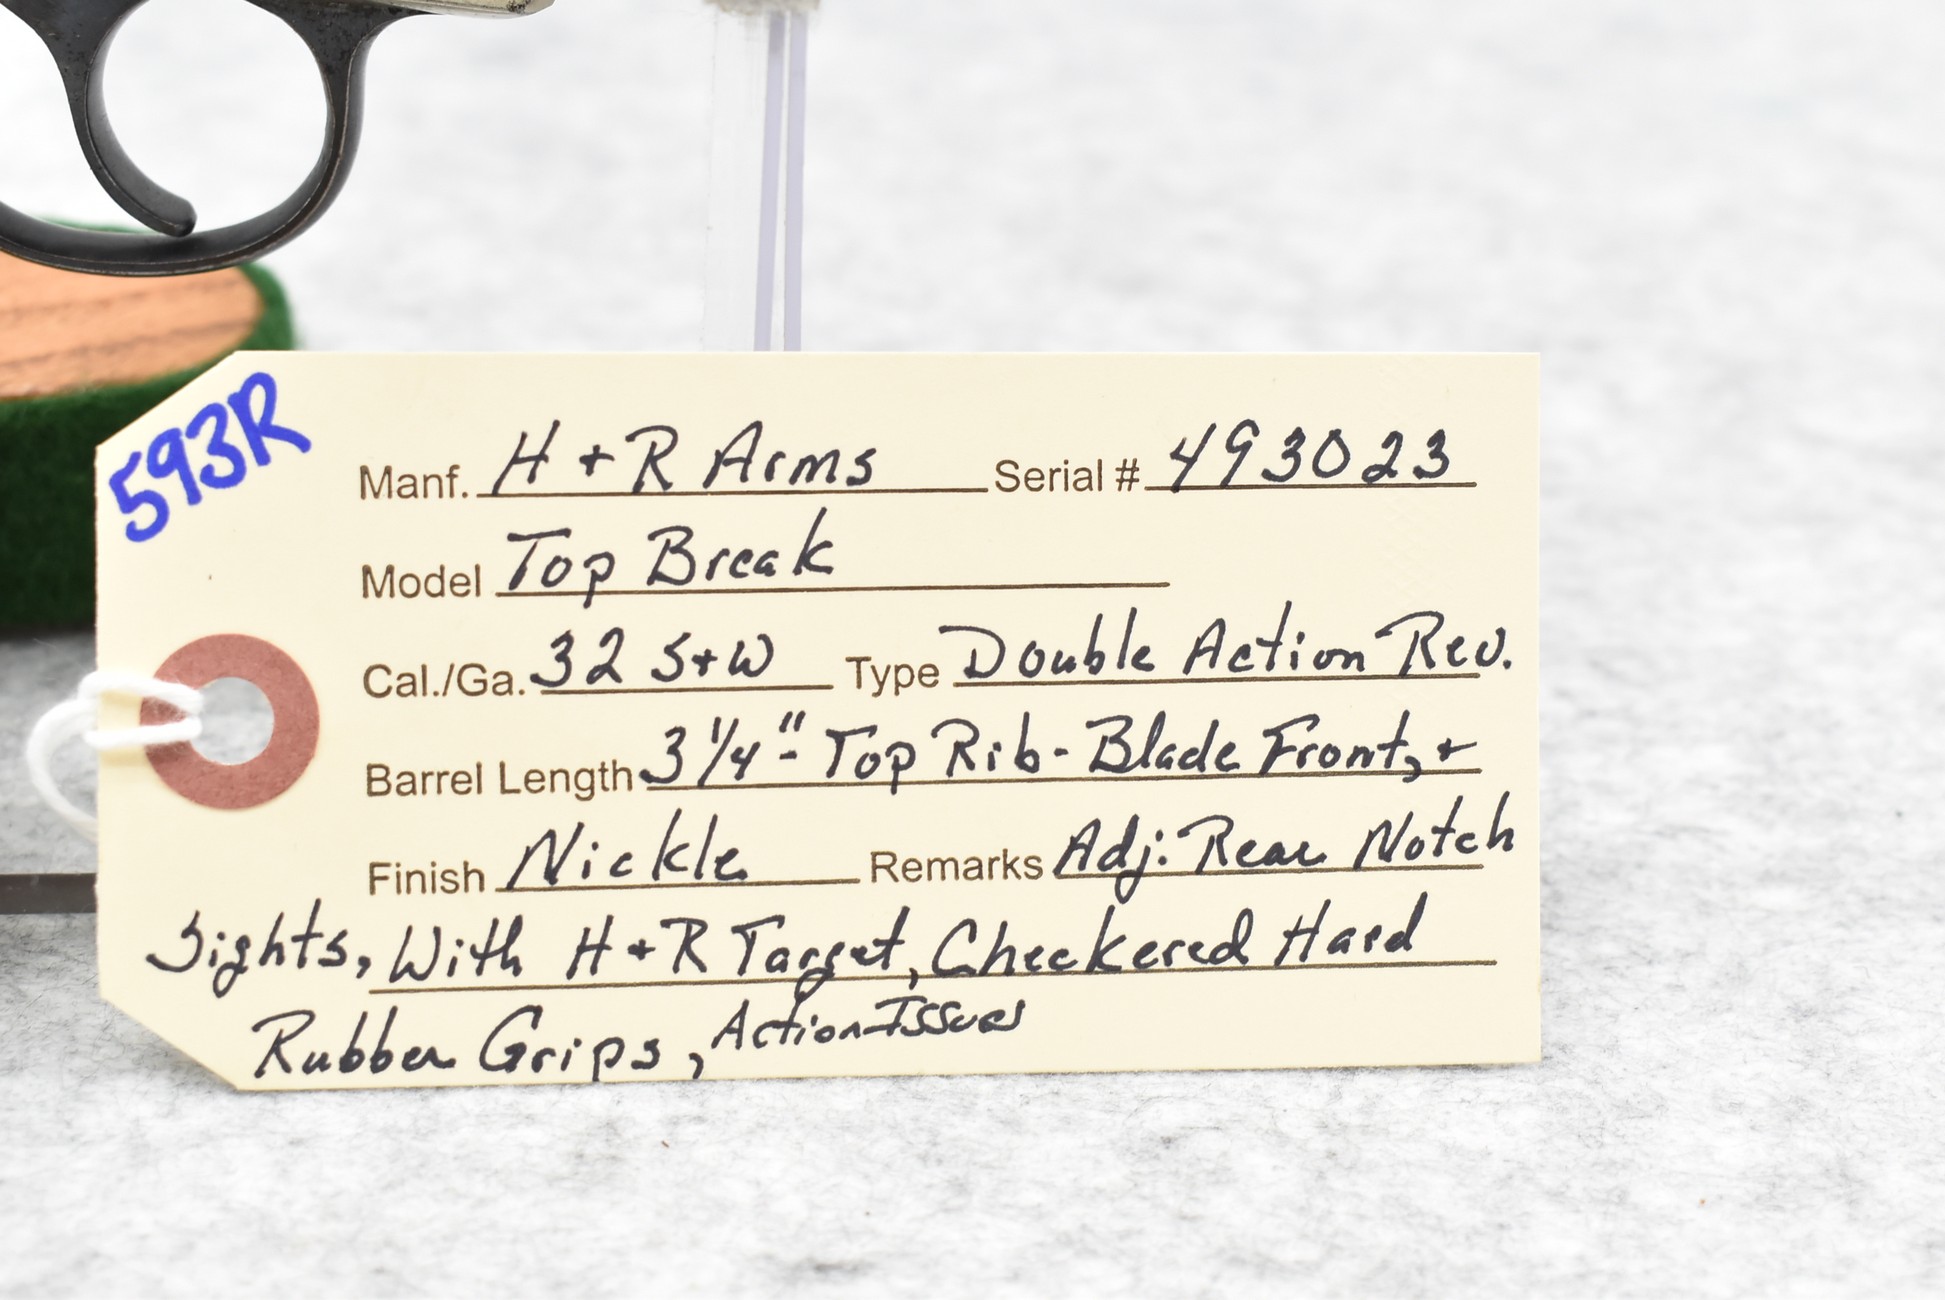 593R
Manf. H + R Arms Serial # 493023
Model Top Break
Cal./Ga. 32 S+W Type Double Action Rev.
Barrel Length 3 1/4" - Top Rib - Blade Front, +
Finish Nickle Remarks Adj. Rear Notch
Sights, With H + R Target, Checkered Hard
Rubber Grips, Action Issues